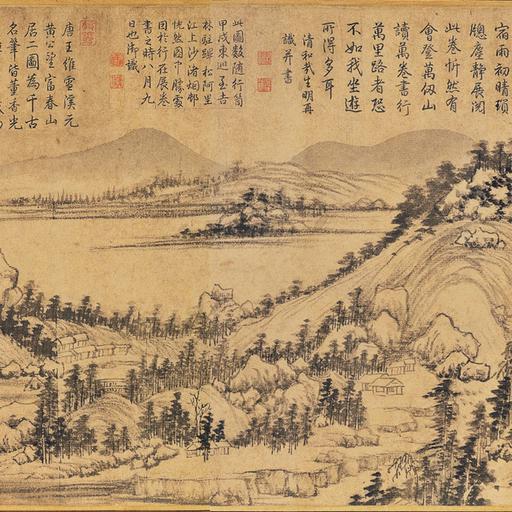 宿雨初晴瑣
牕塵靜展閱
此卷忻然有
會登萬仞山
讀萬卷書行
萬里路者恐
不如我坐遊
所得多耳
清和哉生明再
識并書
此圖數隨行笥
甲戌東巡至吉
林駐蹕松阿里
江上沙渚烟邨
恍然圖中勝處
因於行在展卷
書之時八月九
日也御識
唐王維雪溪元
黃公望富春山
居二圖為千古
名筆皆董香光